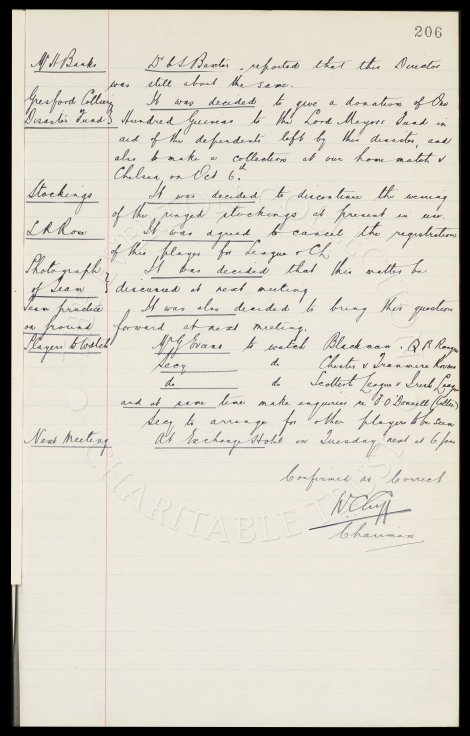 206
Mr H Banks Dr C S Baxter reported that this Director
was still about the same.
Gresford Colliery It was decided to give a donation of One
Disaster Fund Hundred Guineas to the Lord Mayors Fund in
aid of the dependents left by this disaster, and
also to make a collection at our home match v
Chelsea on Oct 6th
Stockings It was decided to discontinue the wearing
of the ringed stockings at present in use.
L R Row It was agreed to cancel the registration
of this player for League & Ch
Photograph It was decided that this matter be
of Team discussed at next meeting
Team practice It was also decided to bring this question
on ground forward at next meeting.
Players to watch Mr G Evans to watch Blackman . Q R Rangers
Secy do Chester v Tranmere Rovers
do do Scottish League v Irish League
and at same time make enquiries re F O'Donnell (Celtic)
Secy to arrange for other players to be seen
Next Meeting At Exchange Hotel on Tuesday next at 6 pm
Confirmed as Correct
W C Cuff
Chairman
CHARITABLE